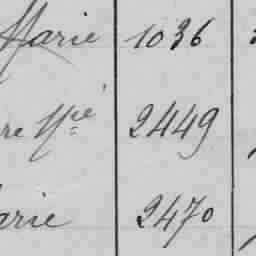 Marie 1036
re Mie 2449
arie 2470